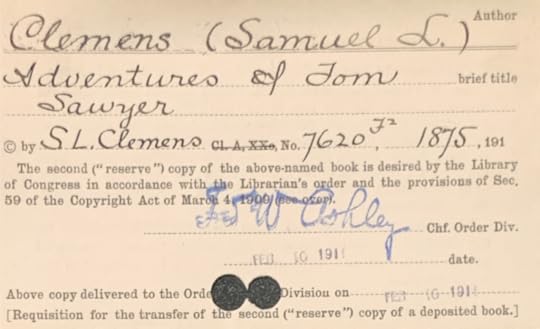 Clemens (Samuel L.) Author
Adventures of Tom brief title
Sawyer
© by S.L. Clemens Cl. A, XXc, No. 7620 F2, 1875, 191
The second ("reserve") copy of the above-named book is desired by the Library
of Congress in accordance with the Librarian's order and the provisions of Sec.
59 of the Copyright Act of March 4, 1909 (see over).
W Ashley Chf. Order Div.
FEB 10 191 date.
Above copy delivered to the Orde Division on FEB 10 191
[Requisition for the transfer of the second ("reserve") copy of a deposited book.]